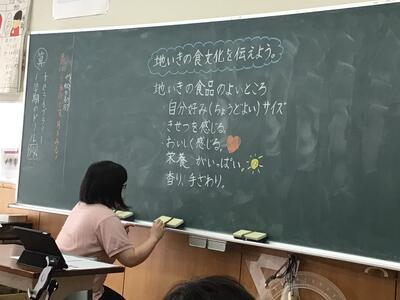 地いきの食文化を伝えよう。
地いきの食品のよいところ
自分好み(ちょうどよい)サイズ
きせつを感じる。
おいしく感じる。
栄養がいっぱい。
香り、手ざわり。
算